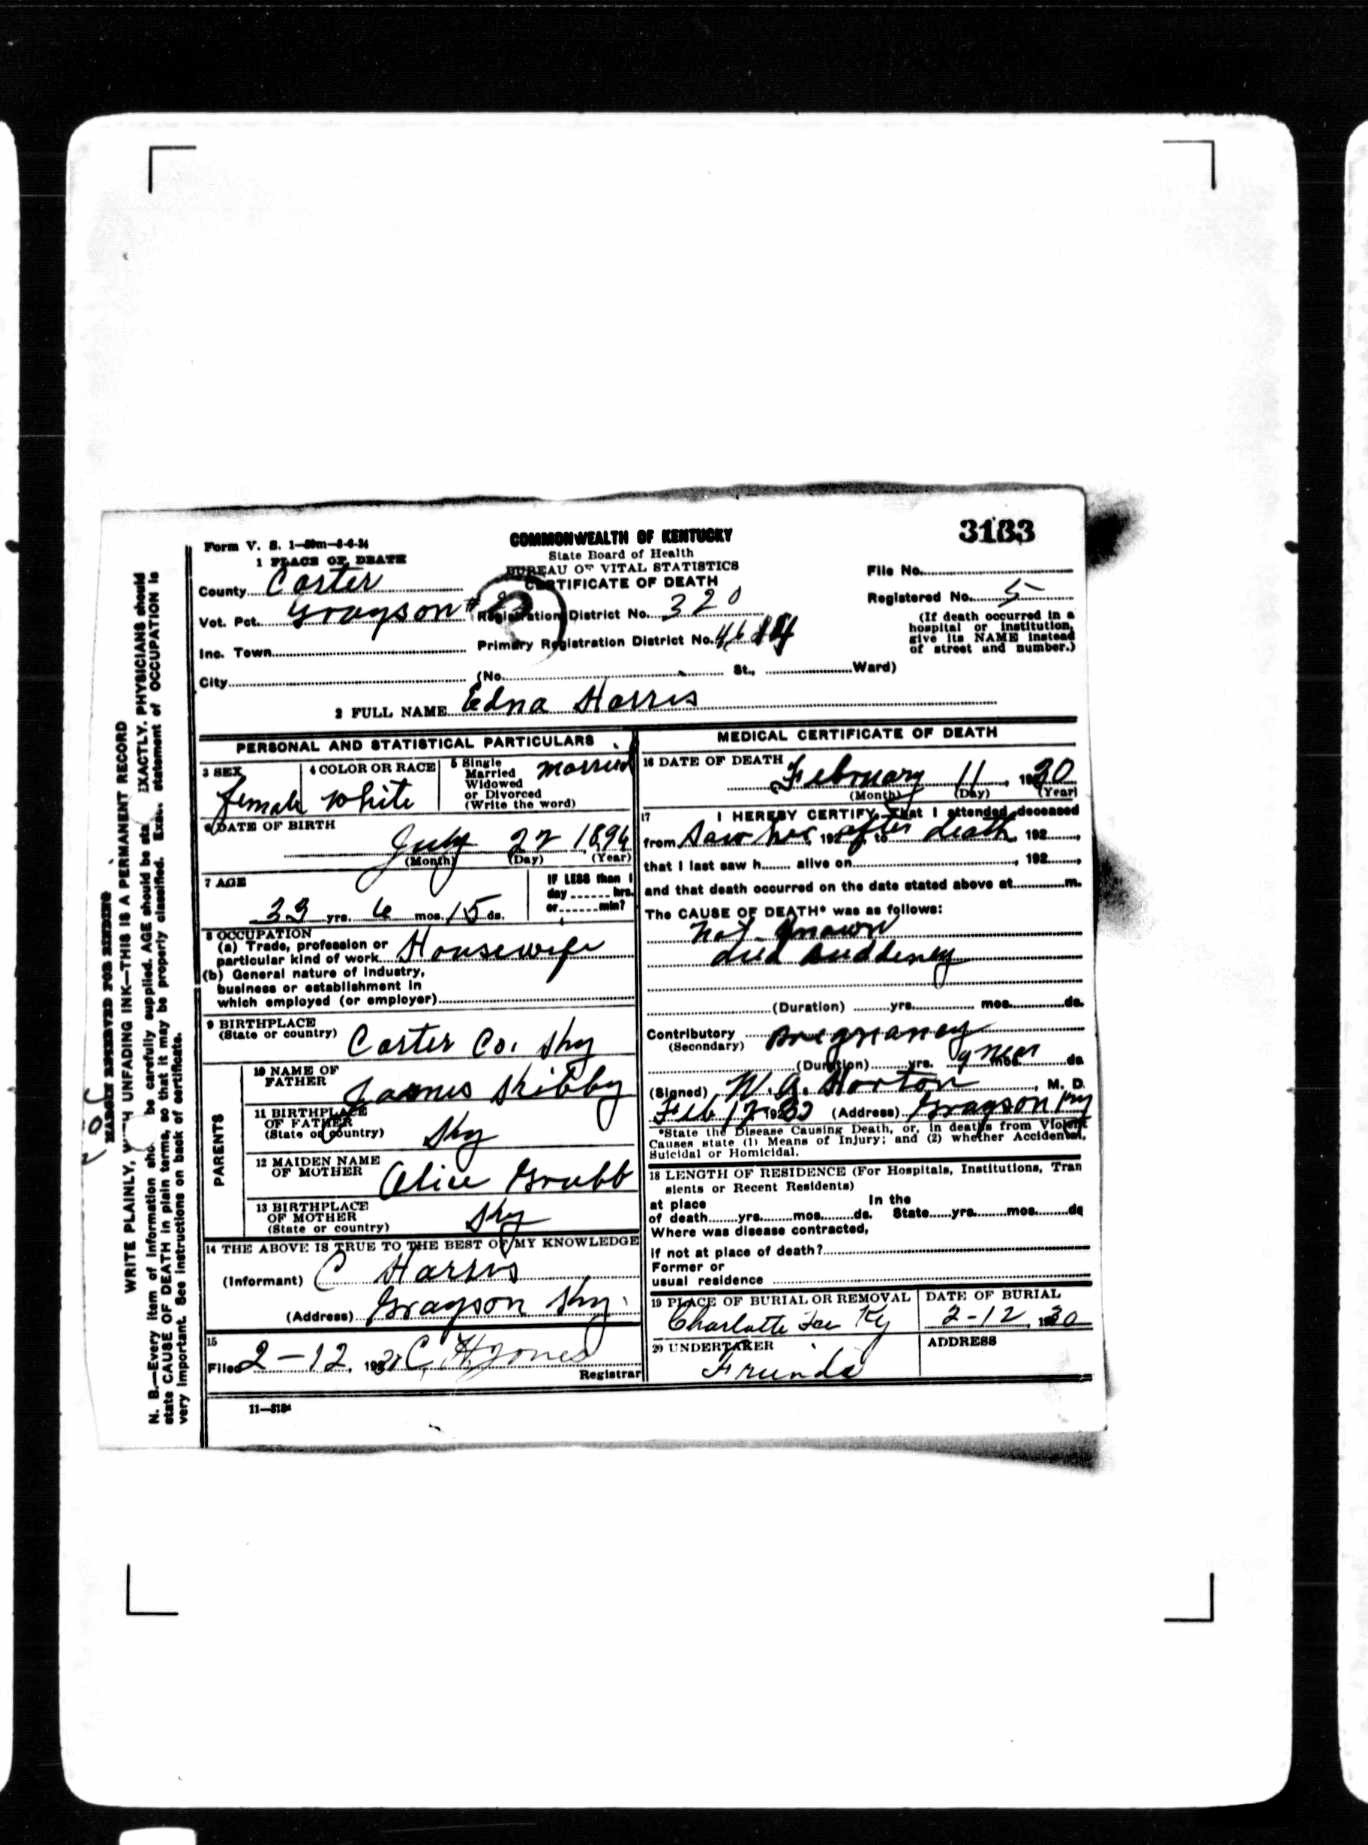 3183
Form V. S. 1—50m—8-6-24
COMMONWEALTH OF KENTUCKY
State Board of Health
BUREAU OF VITAL STATISTICS
CERTIFICATE OF DEATH
1 PLACE OF DEATH
County Carter
Vot. Pct. Grayson #
Inc. Town
City
Registration District No. 320
Primary Registration District No.
(No. St., Ward)
File No.
Registered No. 5
(If death occurred in a
hospital or institution,
give its NAME instead
of street and number.)
2 FULL NAME Edna Harris
PERSONAL AND STATISTICAL PARTICULARS
3 SEX
female
4 COLOR OR RACE
White
5 Single
Married
Widowed
or Divorced
(Write the word)
married
6 DATE OF BIRTH
July 22 1896
(Month) (Day) (Year)
7 AGE
33 yrs. 6 mos. 15 ds.
IF LESS than 1
day hrs.
or min?
8 OCCUPATION
(a) Trade, profession or
particular kind of work Housewife
(b) General nature of industry,
business or establishment in
which employed (or employer)
9 BIRTHPLACE
(State or country) Carter Co. Ky
PARENTS
10 NAME OF
FATHER James Kibby
11 BIRTHPLACE
OF FATHER
(State or country) Ky
12 MAIDEN NAME
OF MOTHER Alice Grubb
13 BIRTHPLACE
OF MOTHER
(State or country) Ky
14 THE ABOVE IS TRUE TO THE BEST OF MY KNOWLEDGE
(Informant) C Harris
(Address) Grayson Ky.
15
Filed 2-12, 192 C. H. Jones
Registrar
11—3184
MEDICAL CERTIFICATE OF DEATH
16 DATE OF DEATH
February 11, 1930
(Month) (Day) (Year)
17 I HEREBY CERTIFY, That I attended deceased
from Saw her, 192 after to death 192
that I last saw h alive on , 192
and that death occurred on the date stated above at m.
The CAUSE OF DEATH* was as follows:
not known
died suddenly
(Duration) yrs. mos. ds.
Contributory Pregnancy
(Secondary)
(Duration) yrs. 9 mos ds
(Signed) W. A. Horton, M. D.
Feb 12 1930 (Address) Grayson Ky
*State the Disease Causing Death, or, in deaths from Violent
Causes state (1) Means of Injury; and (2) whether Accidental,
Suicidal or Homicidal.
18 LENGTH OF RESIDENCE (For Hospitals, Institutions, Tran
sients or Recent Residents)
at place In the
of death yrs. mos. ds. State yrs. mos. ds
Where was disease contracted,
if not at place of death?
Former or
usual residence
19 PLACE OF BURIAL OR REMOVAL
Charlotte Fur Ky
DATE OF BURIAL
2-12, 1930
20 UNDERTAKER
Frunds
ADDRESS
MARGIN RESERVED FOR BINDING
WRITE PLAINLY, WITH UNFADING INK—THIS IS A PERMANENT RECORD
N. B.—Every item of information sho be carefully supplied. AGE should be sta EXACTLY. PHYSICIANS should
state CAUSE OF DEATH in plain terms, so that it may be properly classified. Exa statement of OCCUPATION is
very important. See instructions on back of certificate.